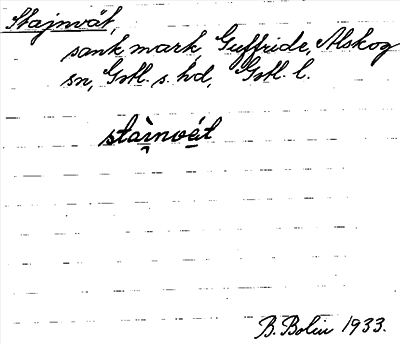 Stajnvät,
sank mark, Guffride, Alskog
sn, Gotl. s. hd, Gotl. l.
stài̯nvé̱it
B. Bolin 1933.